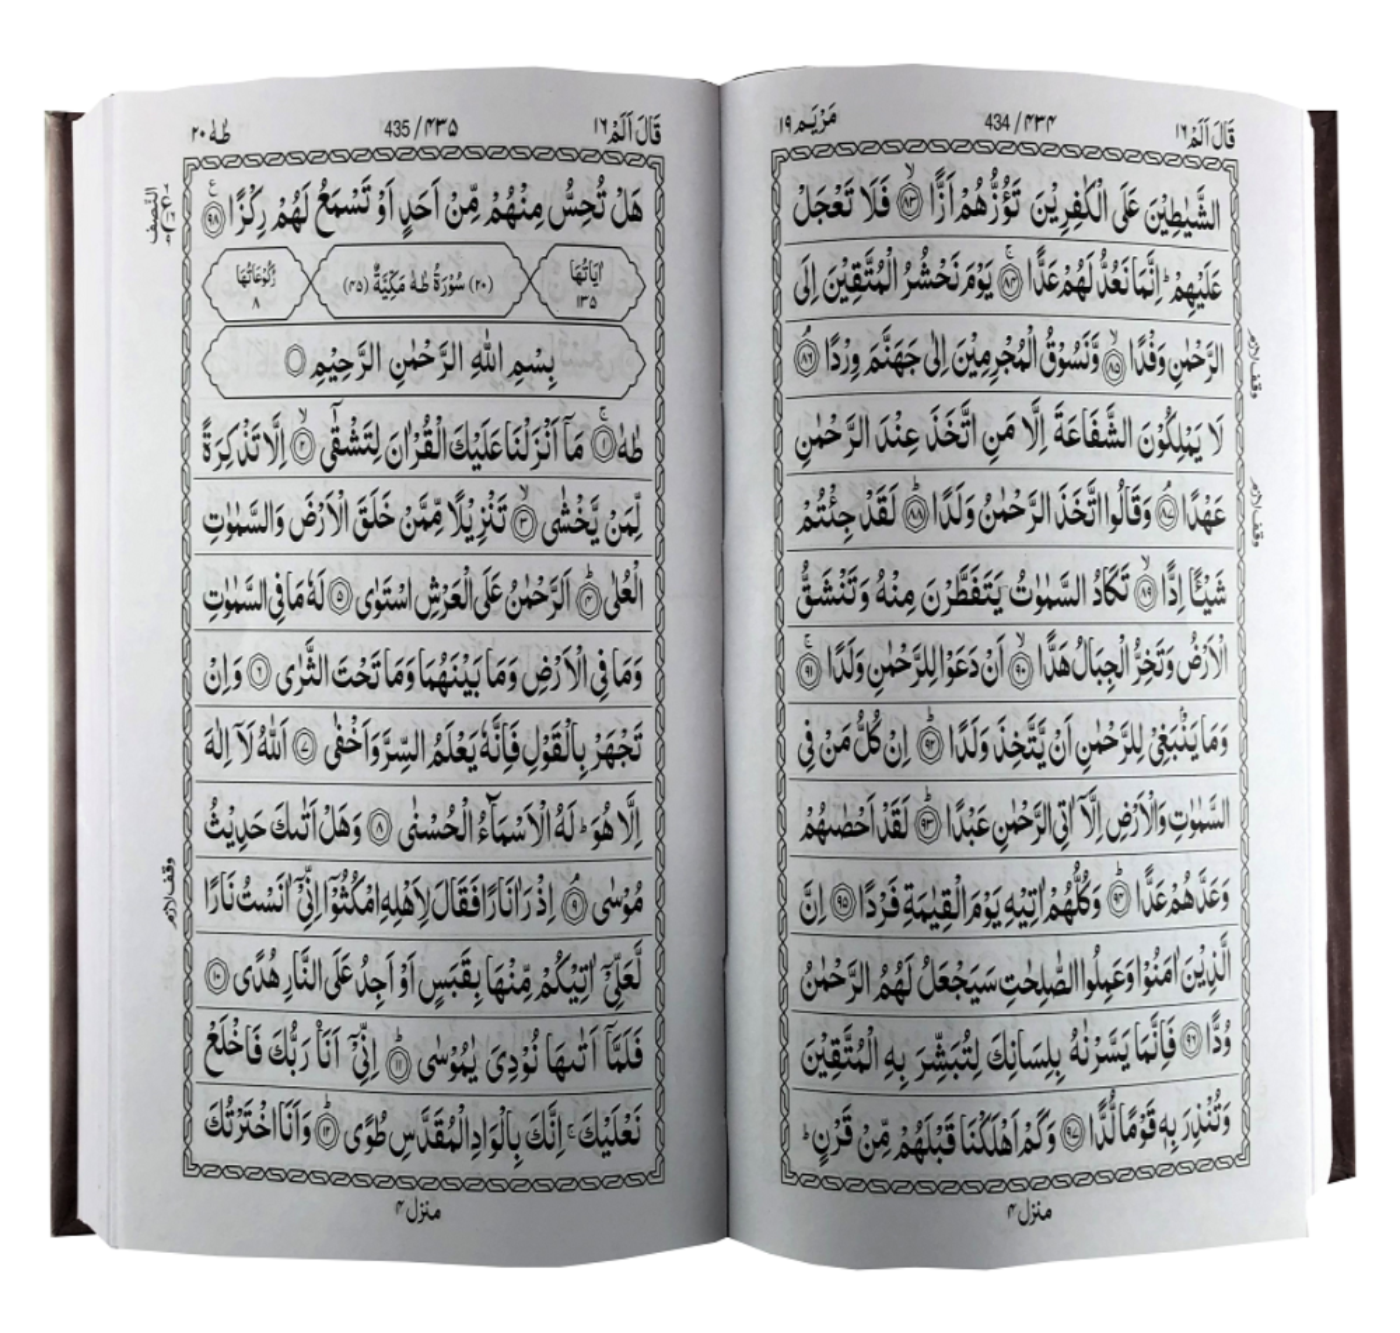 قَالَ اَلَمْ ١٦
434 / ۴۳۴
مَرْيَم ١٩
الشَّيٰطِيْنَ عَلَى الْكٰفِرِيْنَ تَؤُزُّهُمْ اَزًّا ۙ﴿۸۳﴾ فَلَا تَعْجَلْ
عَلَيْهِمْ ؕ اِنَّمَا نَعُدُّ لَهُمْ عَدًّا ۚ﴿۸۴﴾ يَوْمَ نَحْشُرُ الْمُتَّقِيْنَ اِلَى
الرَّحْمٰنِ وَفْدًا ۙ﴿۸۵﴾ وَّنَسُوْقُ الْمُجْرِمِيْنَ اِلٰى جَهَنَّمَ وِرْدًا ۘ﴿۸۶﴾
وقف لازم
لَا يَمْلِكُوْنَ الشَّفَاعَةَ اِلَّا مَنِ اتَّخَذَ عِنْدَ الرَّحْمٰنِ
عَهْدًا ۘ﴿۸۷﴾ وَقَالُوا اتَّخَذَ الرَّحْمٰنُ وَلَدًا ؕ﴿۸۸﴾ لَقَدْ جِئْتُمْ
وقف لازم
شَيْـًٔا اِدًّا ۙ﴿۸۹﴾ تَكَادُ السَّمٰوٰتُ يَتَفَطَّرْنَ مِنْهُ وَتَنْشَقُّ
الْاَرْضُ وَتَخِرُّ الْجِبَالُ هَدًّا ۙ﴿۹۰﴾ اَنْ دَعَوْا لِلرَّحْمٰنِ وَلَدًا ۚ﴿۹۱﴾
وَمَا يَنْۢبَغِىْ لِلرَّحْمٰنِ اَنْ يَّتَّخِذَ وَلَدًا ؕ﴿۹۲﴾ اِنْ كُلُّ مَنْ فِى
السَّمٰوٰتِ وَالْاَرْضِ اِلَّاۤ اٰتِى الرَّحْمٰنِ عَبْدًا ؕ﴿۹۳﴾ لَقَدْ اَحْصٰىهُمْ
وَعَدَّهُمْ عَدًّا ؕ﴿۹۴﴾ وَكُلُّهُمْ اٰتِيْهِ يَوْمَ الْقِيٰمَةِ فَرْدًا ﴿۹۵﴾ اِنَّ
الَّذِيْنَ اٰمَنُوْا وَعَمِلُوا الصّٰلِحٰتِ سَيَجْعَلُ لَهُمُ الرَّحْمٰنُ
وُدًّا ﴿۹۶﴾ فَاِنَّمَا يَسَّرْنٰهُ بِلِسَانِكَ لِتُبَشِّرَ بِهِ الْمُتَّقِيْنَ
وَتُنْذِرَ بِهٖ قَوْمًا لُّدًّا ﴿۹۷﴾ وَكَمْ اَهْلَكْنَا قَبْلَهُمْ مِّنْ قَرْنٍ ؕ
منزل ۴
قَالَ اَلَمْ ١٦
435 / ۴۳۵
طٰهٰ ٢٠
هَلْ تُحِسُّ مِنْهُمْ مِّنْ اَحَدٍ اَوْ تَسْمَعُ لَهُمْ رِكْزًا ﴿۹۸﴾
النّصف
اٰيَاتُهَا ١٣۵
(٢٠) سُوْرَةُ طٰهٰ مَكِّيَّةٌ (۴۵)
رُكُوْعَاتُهَا ٨
بِسْمِ اللّٰهِ الرَّحْمٰنِ الرَّحِيْمِ
طٰهٰ ۚ﴿۱﴾ مَاۤ اَنْزَلْنَا عَلَيْكَ الْقُرْاٰنَ لِتَشْقٰٓى ۙ﴿۲﴾ اِلَّا تَذْكِرَةً
لِّمَنْ يَّخْشٰى ۙ﴿۳﴾ تَنْزِيْلًا مِّمَّنْ خَلَقَ الْاَرْضَ وَالسَّمٰوٰتِ
الْعُلٰى ؕ﴿۴﴾ اَلرَّحْمٰنُ عَلَى الْعَرْشِ اسْتَوٰى ﴿۵﴾ لَهٗ مَا فِى السَّمٰوٰتِ
وَمَا فِى الْاَرْضِ وَمَا بَيْنَهُمَا وَمَا تَحْتَ الثَّرٰى ﴿۶﴾ وَاِنْ
تَجْهَرْ بِالْقَوْلِ فَاِنَّهٗ يَعْلَمُ السِّرَّ وَاَخْفٰى ﴿۷﴾ اَللّٰهُ لَاۤ اِلٰهَ
اِلَّا هُوَ ؕ لَهُ الْاَسْمَآءُ الْحُسْنٰى ﴿۸﴾ وَهَلْ اَتٰىكَ حَدِيْثُ
مُوْسٰى ۘ﴿۹﴾ اِذْ رَاٰ نَارًا فَقَالَ لِاَهْلِهِ امْكُثُوْۤا اِنِّىْۤ اٰنَسْتُ نَارًا
وقف لازم
لَّعَلِّىْۤ اٰتِيْكُمْ مِّنْهَا بِقَبَسٍ اَوْ اَجِدُ عَلَى النَّارِ هُدًى ﴿۱۰﴾
فَلَمَّاۤ اَتٰىهَا نُوْدِىَ يٰمُوْسٰى ؕ﴿۱۱﴾ اِنِّىْۤ اَنَا۠ رَبُّكَ فَاخْلَعْ
نَعْلَيْكَ ۚ اِنَّكَ بِالْوَادِ الْمُقَدَّسِ طُوًى ؕ﴿۱۲﴾ وَاَنَا اخْتَرْتُكَ
منزل ۴